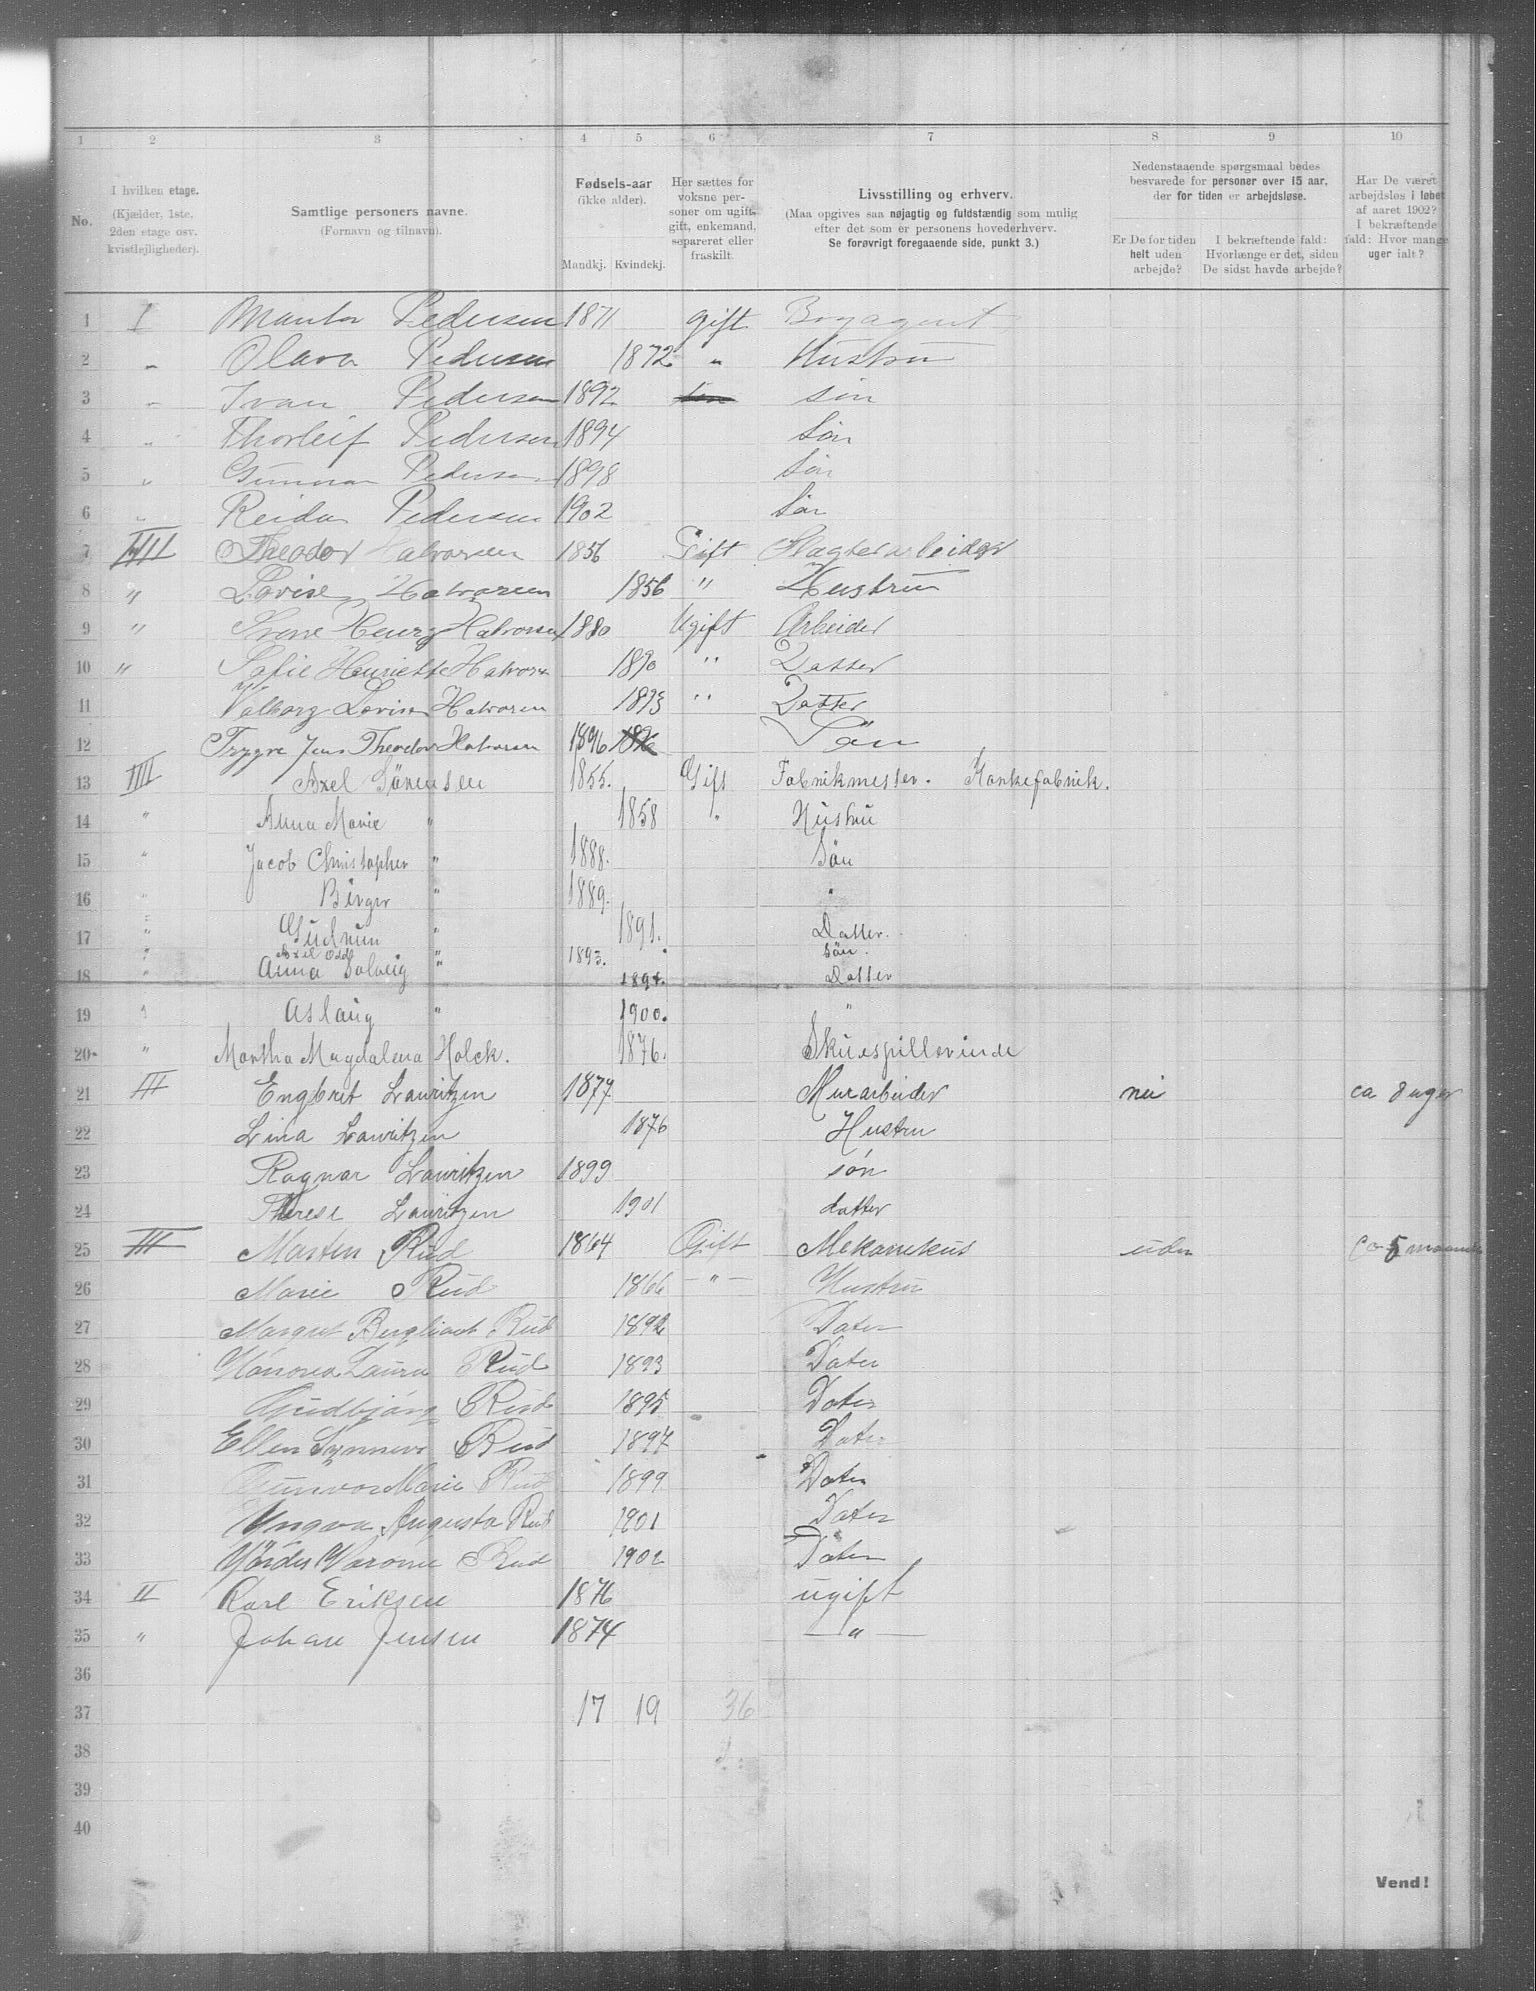 1 2 3 4 5 6 7 8 9 10
No.
I hvilken etage.
(Kjælder, 1ste,
2den etage osv.
kvistlejligheder).
Samtlige personers navne.
(Fornavn og tilnavn).
Fødsels-aar
(ikke alder).
Mandkj. Kvindekj.
Her sættes for
voksne per-
soner om ugift,
gift, enkemand,
separeret eller
fraskilt.
Livsstilling og erhverv.
(Maa opgives saa nøjagtig og fuldstændig som mulig
efter det som er personens hovederhverv.
Se forøvrigt foregaaende side, punkt 3.)
Nedenstaaende spørgsmaal bedes
besvarede for personer over 15 aar,
der for tiden er arbejdsløse.
Er De for tiden
helt uden
arbejde?
I bekræftende fald:
Hvorlænge er det, siden
De sidst havde arbejde?
Har De været
arbejdsløs i løbet
af aaret 1902?
I bekræftende
fald: Hvor mange
uger ialt?
1 I Pedersen 1871 gift Bogagent
2 " Olava Pedersen 1872 " Hustru
3 " Ivan Pedersen 1892 søn
4 " Thorleif Pedersen 1894 Søn
5 " Gunnar Pedersen 1898 Søn
6 " Reidar Pedersen 1902 Søn
7 IIII Theodor Halvorsen 1856 Gift Slagterarbeider
8 " Lovise Halvorsen 1856 " Hustru
9 " Halvorsen 1880 Ugift Arbeider
10 " Sofie Henriette Halvorsen 1890 " Datter
11 Valborg Lovise Halvorsen 1893 " Datter
12 Trygve Jens Theodor Halvorsen 1896 Søn
13 IIII Axel Sörensen 1855. Gift Fabrikmester. Korkefabrik.
14 " Anna Marie " 1858 " Hustru
15 " Jacob Christopher " 1888. Sön
16 " Birger " 1889. "
17 " Gudrun " 1891. Datter.
" Axel Odd " 1893. Sön.
18 " Anna Solveig " 1894. Datter
19 " Aslaug " 1900. "
20 " Martha Magdalena Holck. 1876. Skuespillerinde
21 III Engbret Lauritzen 1877 Murarbeider nei ca 8 uger
22 Lina Lauritzen 1876 Hustru
23 Ragnar Lauritzen 1899 søn
24 Therese Lauritzen 1901 datter
25 III Martin Rud 1864 Gift Mekanikus uden Ca 5
26 Marie Rud 1866 — " — Hustru
27 Margret Rud 1892 Dater
28 Laura Rud 1893 Dater
29 Gudbjörg Rud 1895 Dater
30 Ellen Synnøve Rud 1897 Dater
31 Gunvor Marie Rud 1899 Dater
32 Yngva Augusta Rud 1901 Dater
33 Hjördis Rud 1902 Dater
34 II Karl Eriksen 1876 ugift
35 " Johan Jensen 1874 — " —
36
37 17 19 36
38
39
40
Vend!